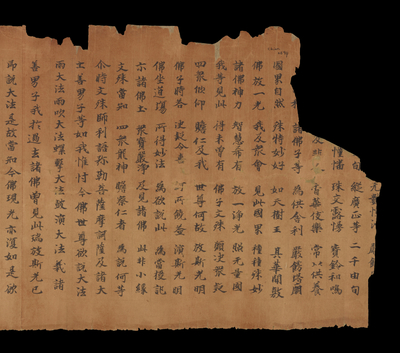 無數恒沙 嚴飾
縱廣正等 二千由旬
幢幡 珠交露幔 寶鈴和鳴
及非人 香華伎樂 常以供養
諸佛子等 為供舍利 嚴飾塔廟
國界自然 殊特妙好 如天樹王 其華開敷
佛放一光 我及眾會 見此國界 種種殊妙
諸佛神力 智慧希有 放一淨光 照无量國
我等見此 得未曾有 佛子文殊 願決眾疑
四眾欣仰 瞻仁及我 世尊何故 放斯光明
佛子時答 決疑令喜 何所饒益 演斯光明
佛坐道場 所得妙法 為欲說此 為當授記
示諸佛土 眾寶嚴淨 及見諸佛 此非小緣
文殊當知 四眾龍神 瞻察仁者 為說何等
尒時文殊師利語弥勒菩薩摩訶薩及諸大
士善男子等如我惟忖今佛世尊欲說大法
雨大法雨吹大法螺擊大法鼓演大法義諸
善男子我於過去諸佛曾見此瑞放斯光已
即說大法是故當知今佛現光亦復如是欲